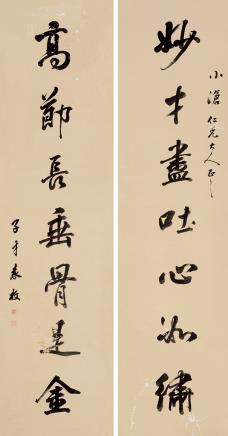 小滄仁兄大人正之
妙才盡吐心如繡
高節長垂骨是金
子才袁枚